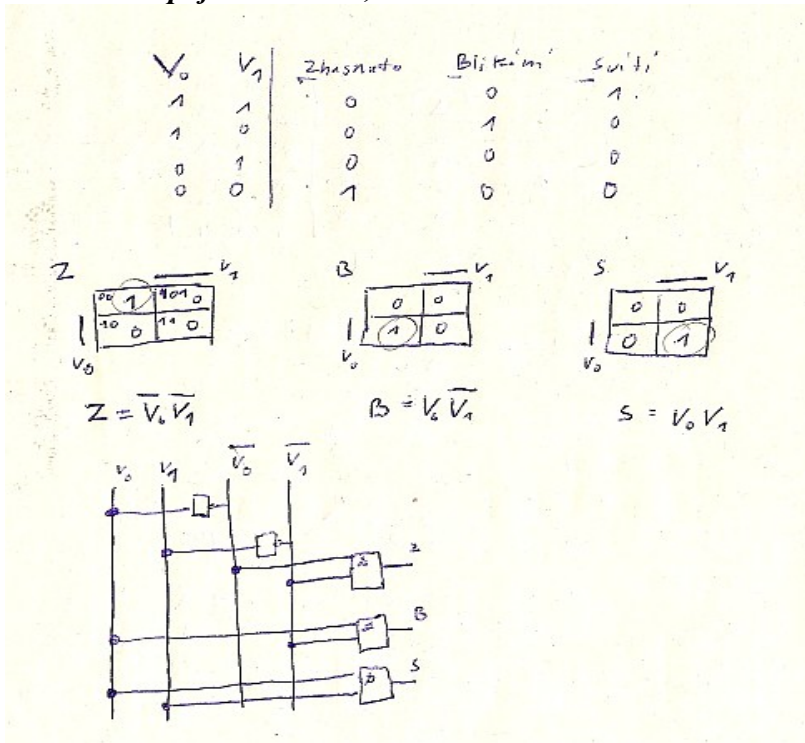 V₀ V₁ Zhasnuto Blikání Svítí
1 1 0 0 1
1 0 0 1 0
0 1 0 0 0
0 0 1 0 0
Z V₁ B V₁ S V₁
00 1 01 0 0 0 0 0
10 0 11 0 1 0 0 1
V₀ V₀ V₀
Z = V̅₀ V̅₁ B = V₀ V̅₁ S = V₀ V₁
V₀ V₁ V̅₀ V̅₁
Z
B
S